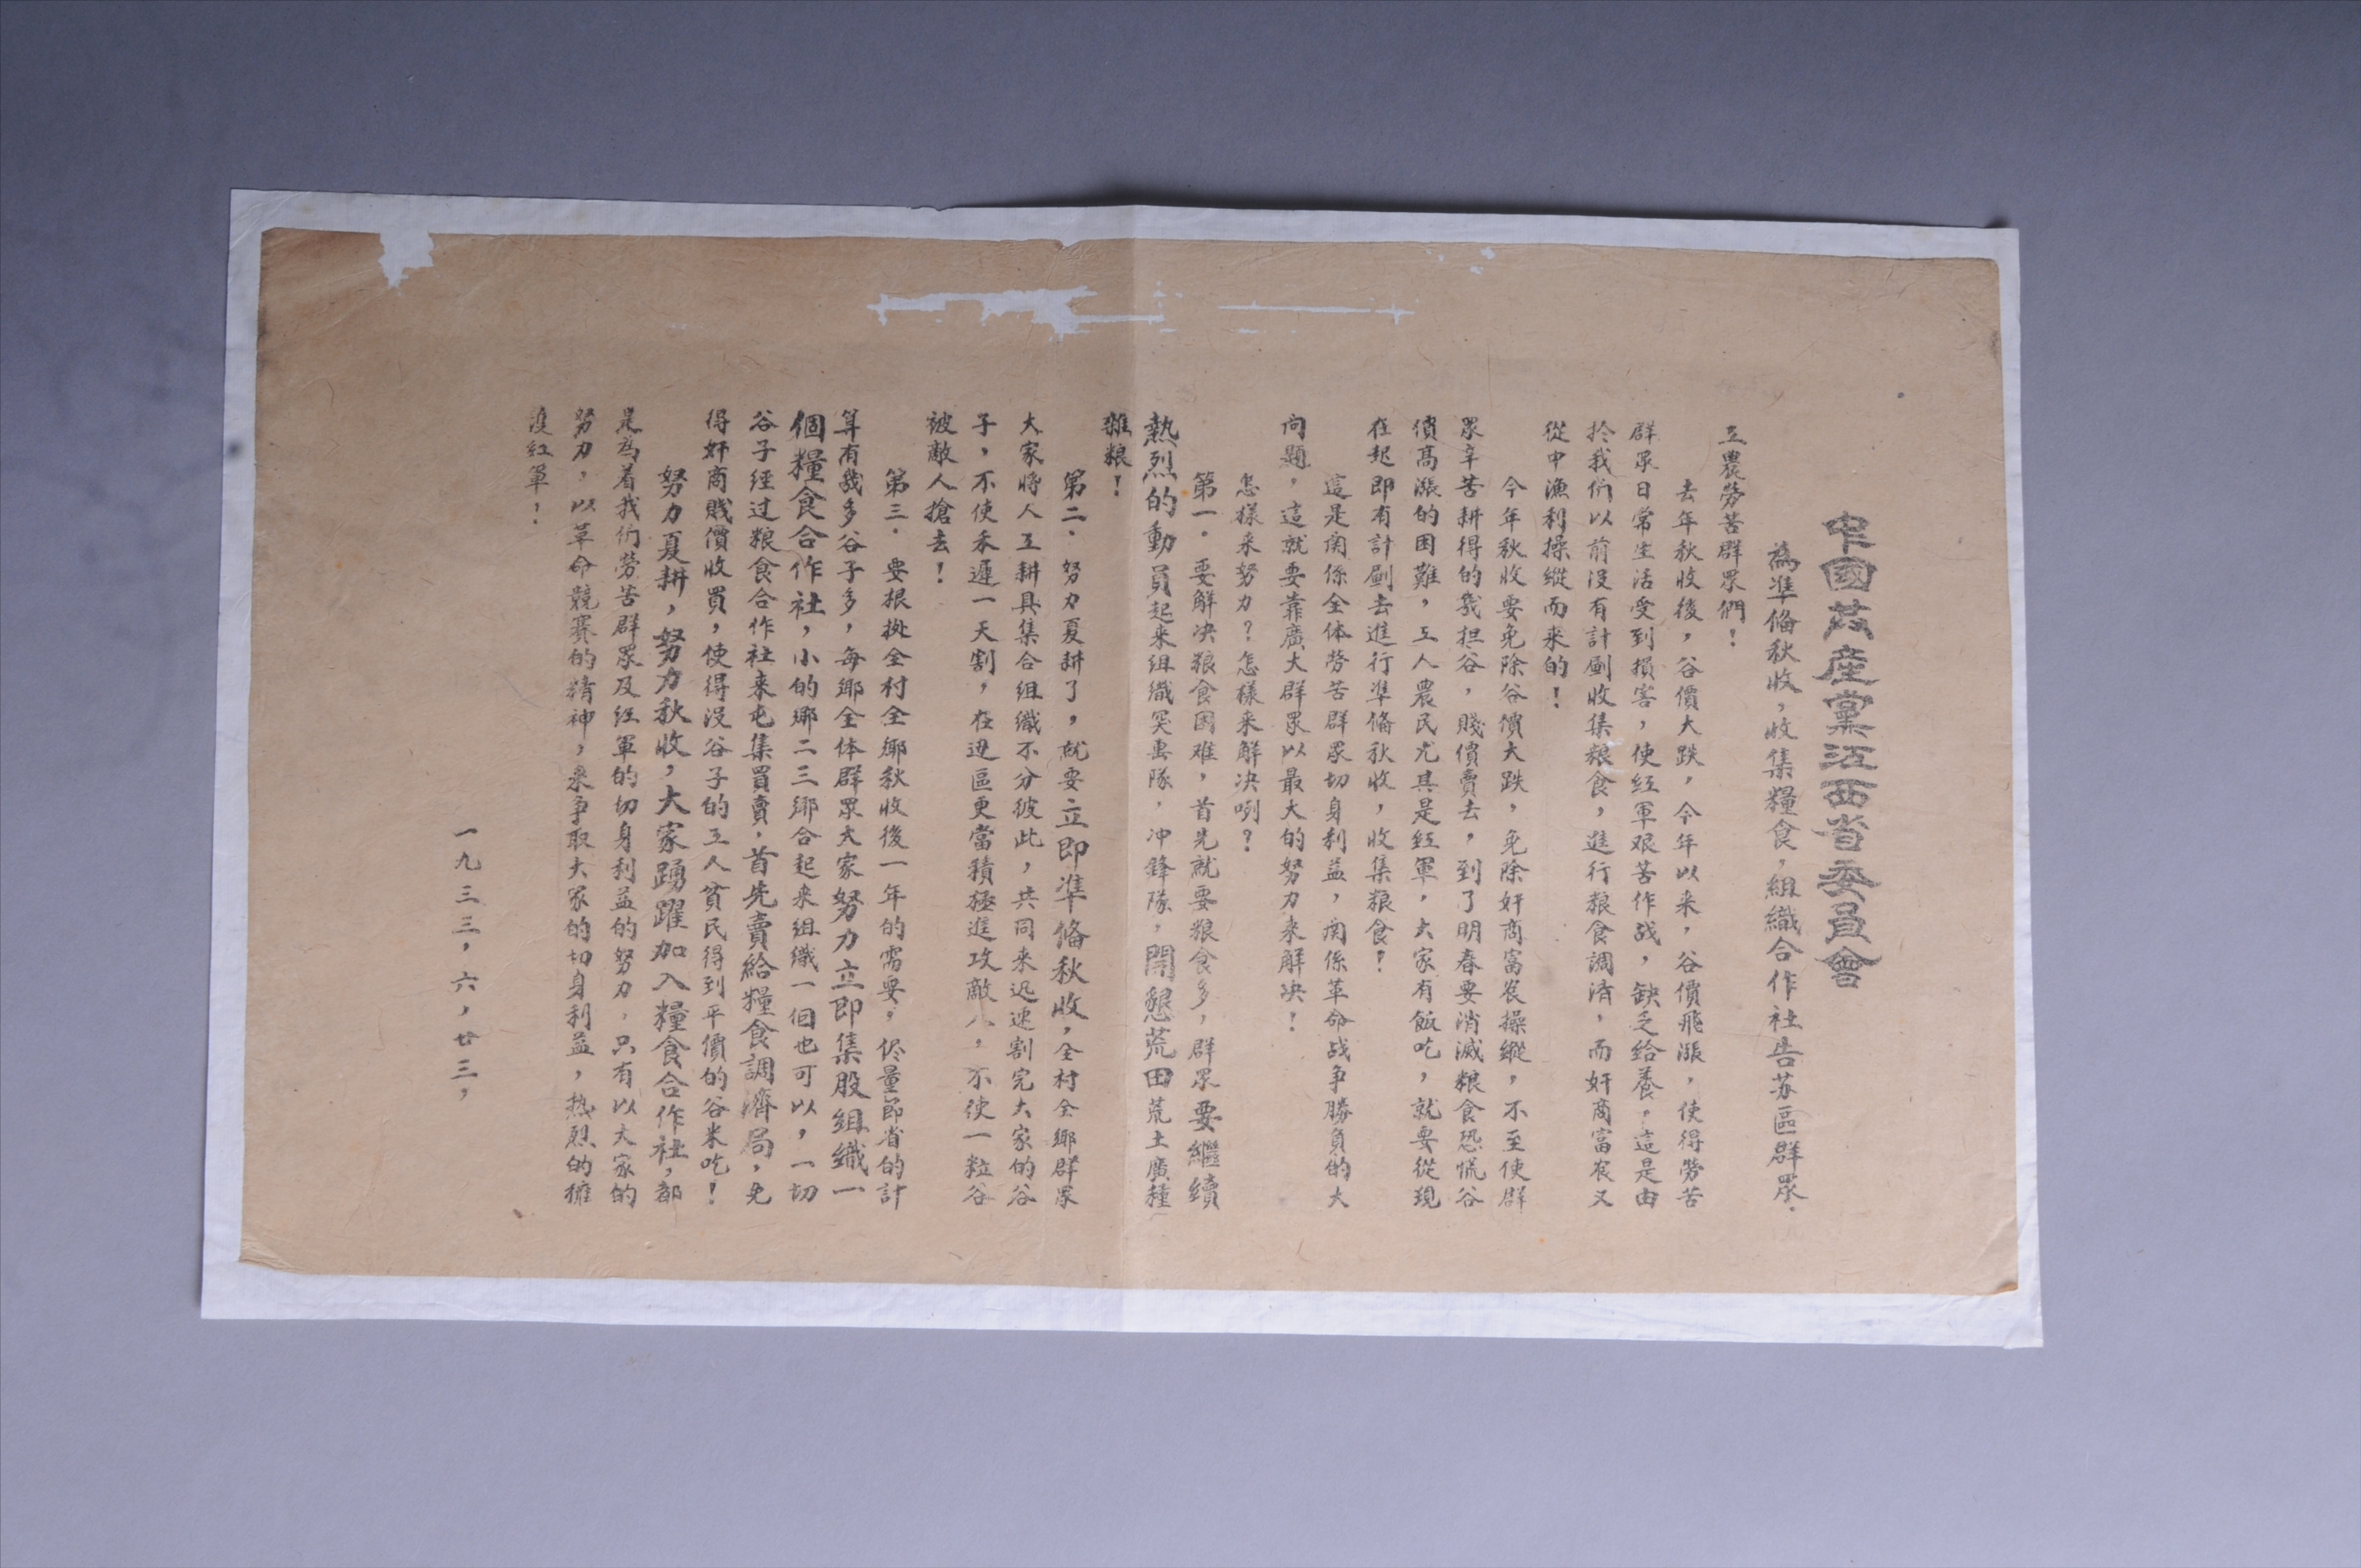 中國共產黨江西省委員會
為準偹秋收，收集糧食，組織合作社告苏區群眾．
工農勞苦群眾們！
去年秋收後，谷價大跌，今年以来，谷價飛漲，使得勞苦
群眾日常生活受到損害，使红軍艰苦作战，缺乏给養，這是由
扵我们以前没有計劃收集粮食，進行粮食調済，而奸商富农又
從中漁利操縱而来的！
今年秋收要免除谷價大跌，免除奸商富农操縱，不至使群
眾辛苦耕得的我担谷，賤價賣去，到了明春要消滅粮食恐慌谷
價高漲的困難，工人農民尤其是红軍，大家有飯吃，就要從現
在起即有計劃去進行準偹秋收，收集粮食！
這是関係全体勞苦群眾切身利益，関係革命战争勝負的大
问題，這就要靠廣大群眾以最大的努力来解决！
怎樣来努力？怎樣来解决咧？
第一．要解决粮食困难，首先就要粮食多，群眾要繼續
熱烈的動員起来组織突击隊，冲鋒隊，開懇荒田荒土廣種
雜粮！
第二．努力夏耕了，就要立即準偹秋收，全村全鄉群眾
大家将人工耕具集合组織不分彼此，共同来迅速割完大家的谷
子，不使禾遲一天割，在边區更當積極進攻敵人，不使一粒谷
被敵人搶去！
第三．要根据全村全鄉秋收後一年的需要，侭量節省的計
算有幾多谷子多，每鄉全体群眾大家努力立即集股组織一
個糧食合作社，小的鄉二三鄉合起来组織一個也可以，一切
谷子经过粮食合作社来屯集買賣，首先賣給糧食調濟局，免
得奸商賤價收買，使得没谷子的工人貧民得到平價的谷米吃！
努力夏耕，努力秋收，大家踴躍加入糧食合作社，都
是为着我们勞苦群眾及红軍的切身利益的努力，只有以大家的
努力，以革命競赛的精神，来争取大家的切身利益，热烈的擁
護红軍！
一九三三，六，廿三，